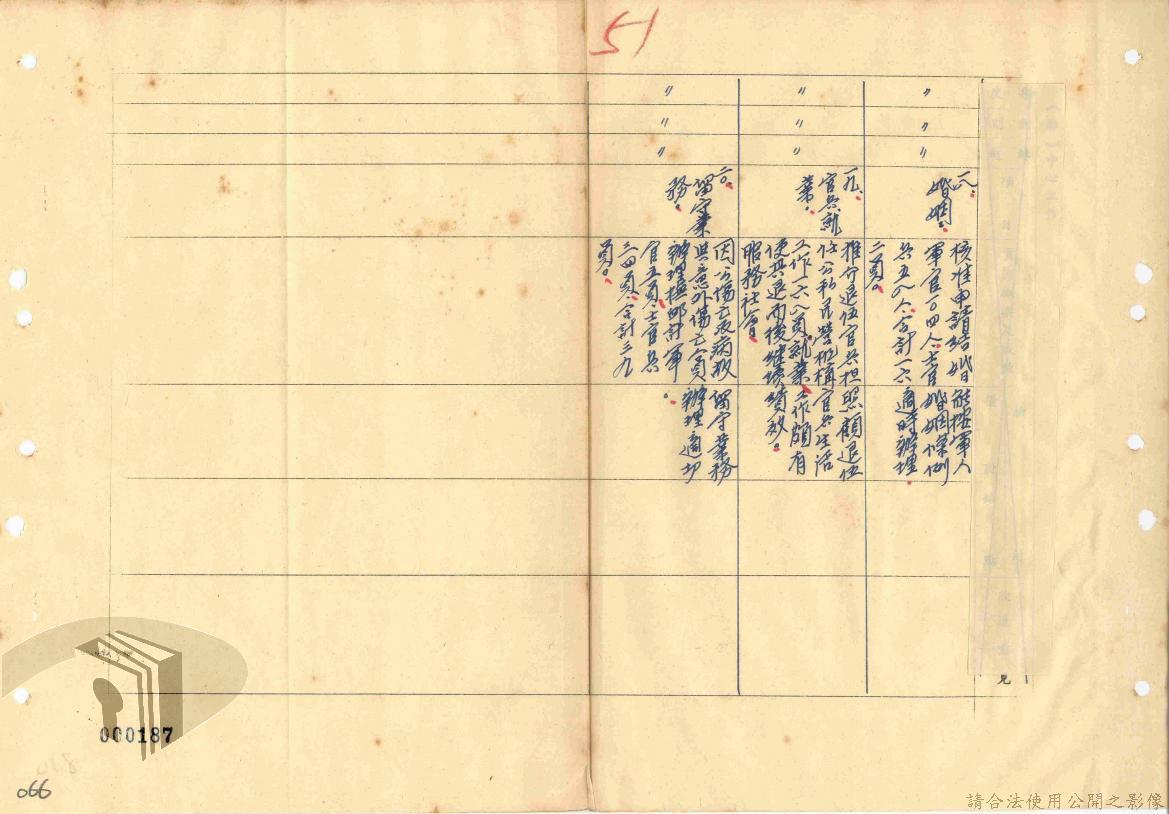 51
〃
〃
〃
一八、
婚姻。
核准申請結婚
軍官一〇四人、士官
兵五八人、合計一六
二員。
能按軍人
婚姻條例
適時辦理。
〃
〃
〃
一九、
官兵就
業。
推介退伍官兵
任公私民營機構
工作一六八員就業
使其退而後繼續
服務社會。
担照顧退伍
官兵生活
工作頗有
績效。
〃
〃
〃
二〇、
留守業
務。
因公傷亡及病故
與意外傷亡人員
辦理撫卹計軍
官五員、士官兵
三四員、合計三九
員。
留守業務
辦理適切
。
見
000187
066
請合法使用公開之影像